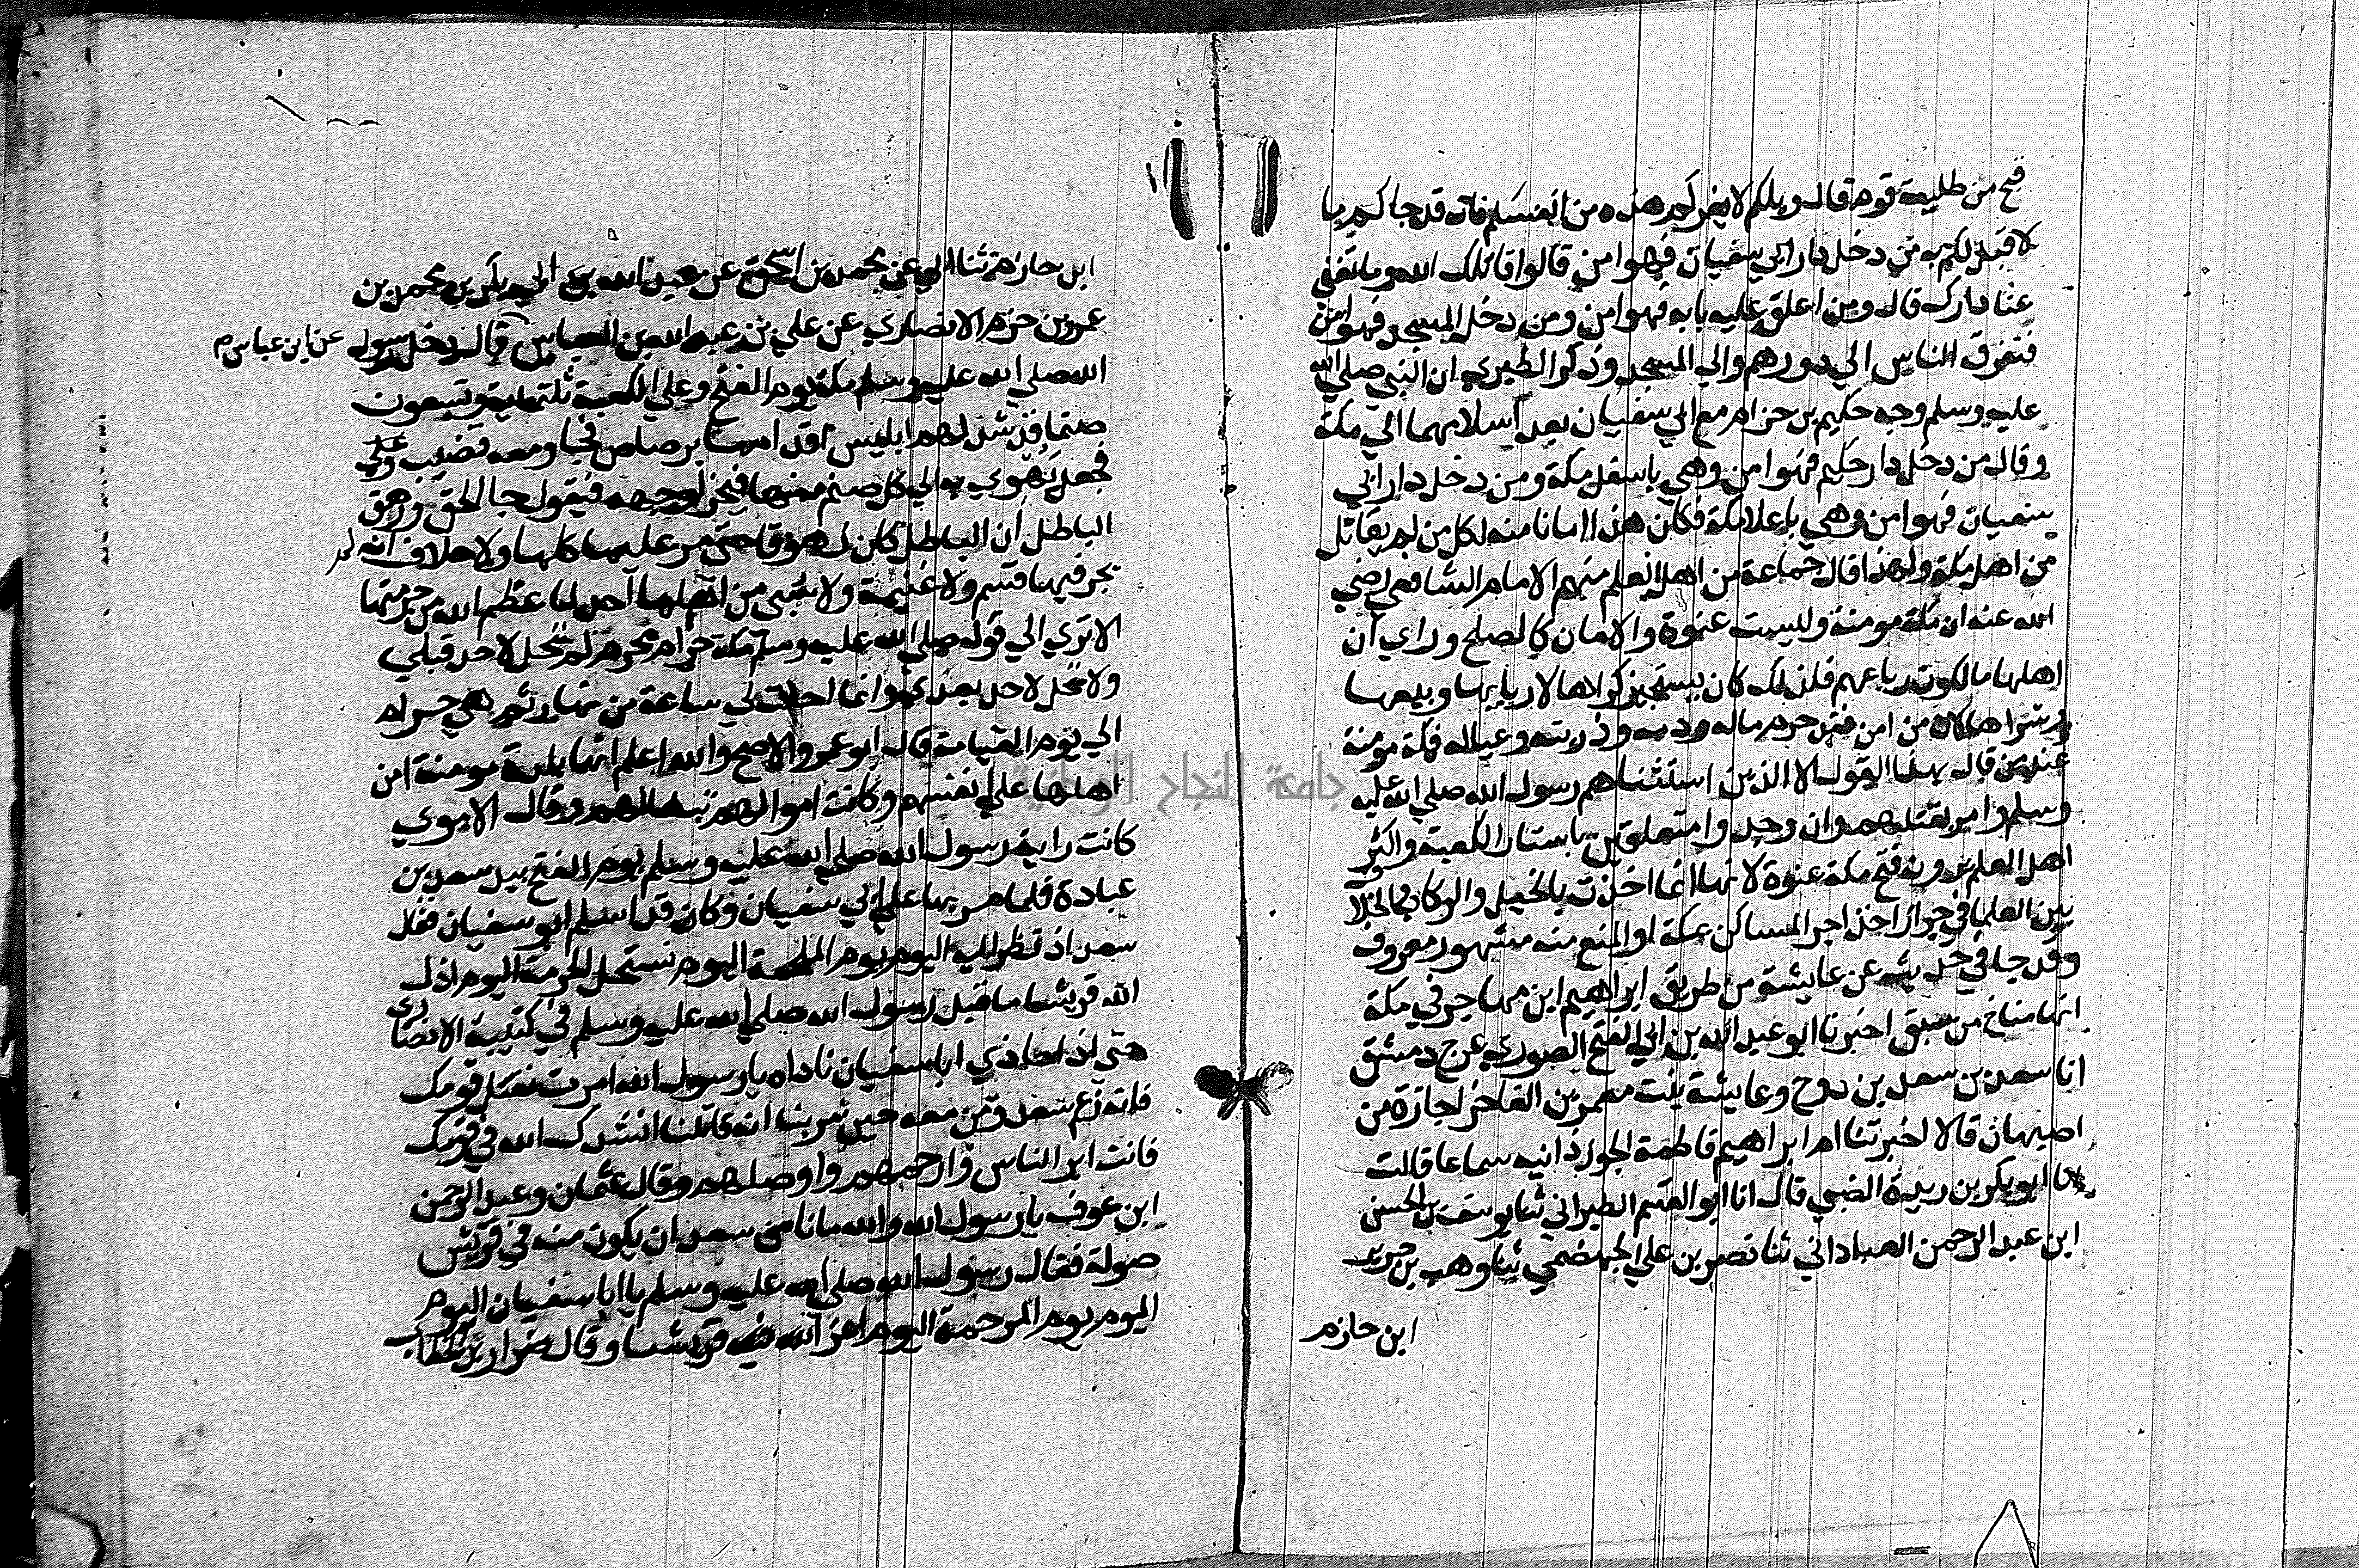 قبح من طليعة قوم قال ويلكم لا يغرنكم هذه من انفسكم فانه قد جاكم بما
لا قبل لكم به من دخل دار ابي سفيان فهو امن قالوا قاتلك الله وما تغني
عنا دارك قال ومن اغلق عليه بابه فهو امن ومن دخل المسجد فهو امن
فتفرق الناس الي دورهم والي المسجد وذكر الطبري ان النبي صلي الله
عليه وسلم وجه حكيم بن حزام مع ابي سفيان بعد اسلامهما الي مكة
وقال من دخل دار حكيم فهو امن وهي باسفل مكة ومن دخل دار ابي
سفيان فهو امن وهي باعلا مكة فكان هذا امانا منه لكل من لم يقاتل
من اهل مكة ولهذا قال جماعة من اهل العلم منهم الامام الشافعي رضي
الله عنه ان مكة مومنة وليست عنوة والامان كالصلح وراي ان
اهلها مالكون رباعهم فلذلك كان يستجيز كراها لاربابها وبيعها
وشراها لان من امن فقد حرم ماله ودمه وذريته وعياله فمكة مومنة
عند من قال بهذا القول الا الذين استثناهم رسول الله صلي الله عليه
وسلم وامر بقتلهم وان وجدوا متعلقين باستار الكعبة واكثر
اهل العلم يرون فتح مكة عنوة لانها انما اخذت بالخيل والركاب والخلاف
بين العلما في جواز اخذ اجر المساكن بمكة او المنع منه مشهور معروف
وقد جا في حديث عن عايشة من طريق ابراهيم ابن مهاجر في مكة
انها مناخ من سبق اخبرنا ابو عبد الله بن ابي الفتح الصوري بمرج دمشق
انا سعد بن سعد بن روح وعايشة بنت معمر بن الفاخر اجازة من
اصبهان قالا اخبرتنا ام ابراهيم فاطمة الجوزدانيه سماعا قالت
انا ابو بكر بن ريذة الضبي قال انا ابو القسم الطبراني ثنا يوسف بن الحسن
ابن عبد الرحمن العباداني ثنا نصر بن علي الجهضمي ثنا وهب بن جرير
ابن حازم
ابن حازم ثنا ابي عن محمد بن اسحق عن عبد الله بن ابي بكر بن محمد بن
عمرو بن حزم الانصاري عن علي بن عبد الله بن العباس قال دخل رسول
عن ابن عباس م
الله صلي الله عليه وسلم مكة يوم الفتح وعلي الكعبة ثلثماية وستون
صنما قد شد لهم ابليس اقدامها برصاص فجا ومعه قضيب
فجعل يهوي به الي كل صنم منها فيخر لوجهه فيقول جا الحق وزهق
الباطل ان الباطل كان زهوقا حتي مر عليها كلها ولا خلاف انه لم
يجر فيها قسم ولا غنيمة ولا سبي من اهلها احد لما عظم الله من حرمتها
الا تري الي قوله صلي الله عليه وسلم مكة حرام محرم لم تحل لاحد قبلي
ولا تحل لاحد بعدي وانما احلت لي ساعة من نهار ثم هي حرام
الي يوم القيامة قال ابو عمر والاصح والله اعلم انها بلدة مومنة امن
اهلها علي انفسهم وكانت اموالهم تبعا لهم وقال الاموي
كانت راية رسول الله صلي الله عليه وسلم يوم الفتح بيد سعد بن
عبادة فلما مر بها علي ابي سفيان وكان قد اسلم ابو سفيان فقال
سعد اذ نظر اليه اليوم يوم الملحمة اليوم تستحل الحرمة اليوم اذل
الله قريشا فاقبل رسول الله صلي الله عليه وسلم في كتيبة الانصار
حتي اذا حاذي ابا سفيان ناداه يا رسول الله امرت بقتل قومك
فانه زعم سعد ومن معه حين مر بنا انه قاتلنا انشدك الله في قومك
فانت ابر الناس وارحمهم واوصلهم وقال عثمان وعبد الرحمن
ابن عوف يا رسول الله والله ما نامن سعد ان يكون منه في قريش
صولة فقال رسول الله صلي الله عليه وسلم يا ابا سفيان اليوم
اليوم يوم المرحمة اليوم اعز الله فيه قريشا وقال ضرار بن الخطاب
جامعة النجاح الوطنية